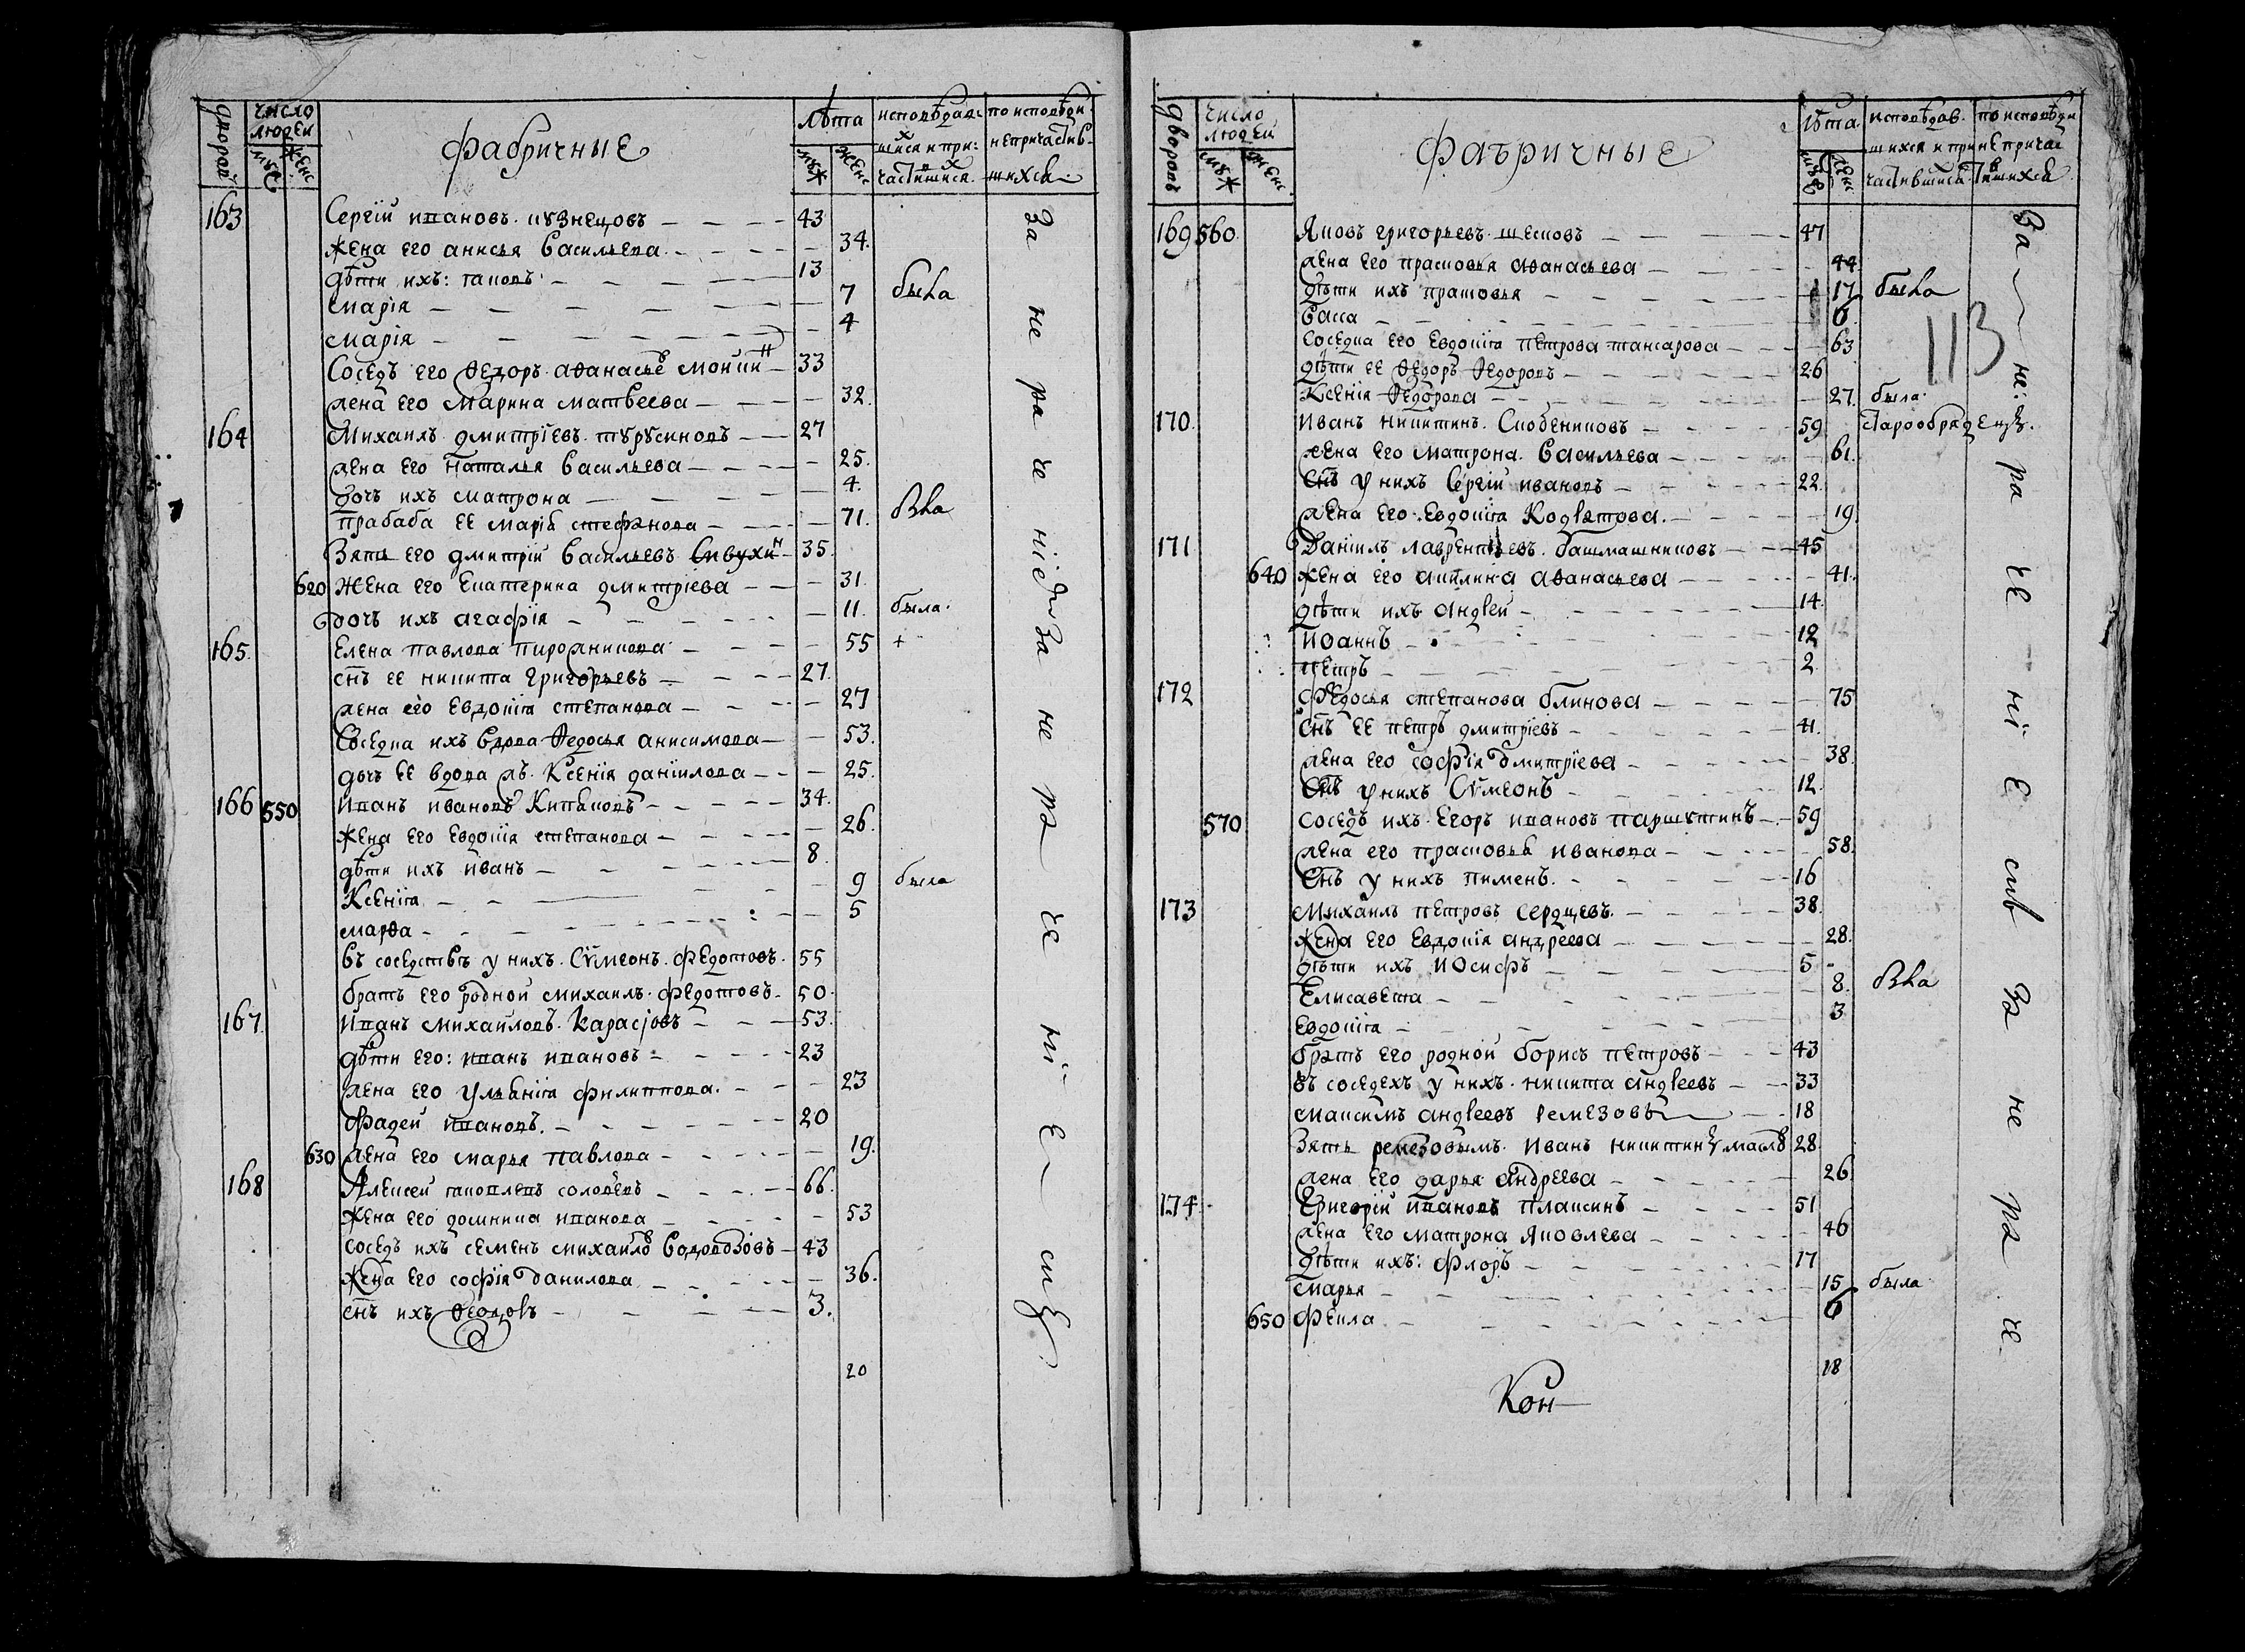 дворовъ
число людей
муж
женс
Фабричные
лѣта
муж
женс
исповѣдавшихся и причастившихся
по исповѣди непричастившихся
163 Сергїй ивановъ кузнецовъ 43
жена его анисья васильева 34
дѣти ихъ: іаковъ 13
марія 7 была
марія 4
Соседъ его ѳедоръ аѳанасьевъ 33
жена его марина матвеева 32
164 Михаилъ дмитріевъ турусиновъ 27
жена его наталья васильева 25
дочь ихъ матрона 4
прабаба ее марія стефанова 71
Зять его дмитрій васильевъ сивухинъ 35
620 жена его екатерина дмитріева 31
дочь ихъ агафія 11 была
165 Елена павлова пирожникова 55 +
снъ ее никита григорьевъ 27
жена его евдокіа степанова 27
соседка ихъ вдова ѳедосья анисимова 53
дочь ее вдова жъ ксенія даніилова 25
166 550 Иванъ ивановъ 34
жена его евдокіа степанова 26
дѣти ихъ иванъ 8
Ксеніа 9 была
марѳа 5
въ соседствѣ у нихъ Сѵмеонъ федотовъ 55
братъ его родной михаилъ федотовъ 50
167 Иванъ михайловъ карасіовъ 53
дѣти его: иванъ ивановъ 23
жена его ульяніа филиппова 23
фадей ивановъ 20
630 жена его марья павлова 19
168 Алексей іаковлевъ соловьевъ 66
жена его домника иванова 53
соседъ ихъ семенъ михайловъ водовозовъ 43
жена его софія данилова 36
снъ ихъ ѳеодоръ 3
20
За нерачениемъ
За нерачениемъ
дворовъ
число людей
муж
женс
Фабричные
лѣта
муж
женс
исповѣдавшихся и причастившихся
по исповѣди непричастившихся
113
169 560 Яковъ григорьевъ шековъ 47
жена его прасковья аѳанасьева 44
дѣти ихъ прасковья 17 была
васса 6
соседка его евдокіа петрова 63
дѣти ее ѳедоръ ѳедоровъ 26
Ксенія ѳедорова 27 была
170 Иванъ никитинъ скобениковъ 59 старообрядецъ
жена его матрона васильева 61
снъ у нихъ сергій ивановъ 22
жена его евдокіа кодратова 19
171 Даніилъ лаврентьевъ башмашниковъ 45
640 жена его акилина аѳанасьева 41
дѣти ихъ андрей 14
Иоаннъ 12
петръ 2
172 Федосья степанова блинова 75
снъ ее петръ дмитріевъ 41
жена его софія дмитріева 38
снъ у нихъ Сѵмеонъ 12
570 соседъ ихъ егоръ ивановъ паршутинъ 59
жена его прасковья иванова 58
снъ у нихъ пименъ 16
173 Михаилъ петровъ сердцевъ 38
жена его евдокія андреева 28
дѣти ихъ иосифъ 5
Елисавета 8
евдокіа 3
братъ его родной борисъ петровъ 43
въ соседехъ у нихъ никита андреевъ 33
максимъ андреевъ ремезовъ 18
Зять ремезовымъ иванъ никитинъ 28
жена его дарья андреева 26
174 Григорій ивановъ плаксинъ 51
жена его матрона яковлева 46
дѣти ихъ: флоръ 17
марья 15 была
650 фекла 6
18
Кон
За нерачениемъ
За нераче